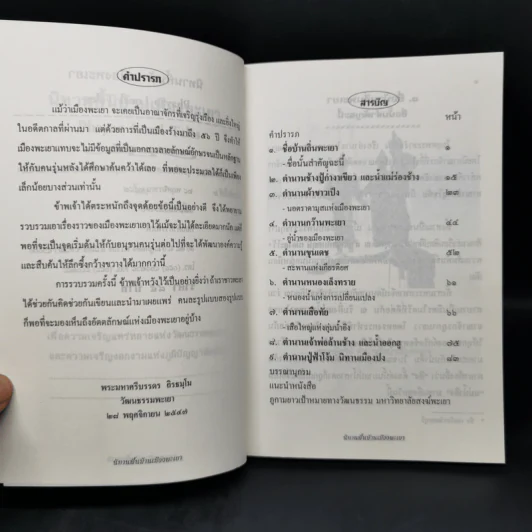 คำปรารภ
แม้ว่าเมืองพะเยา จะเคยเป็นอาณาจักรที่เจริญรุ่งเรือง และยิ่งใหญ่
ในอดีตกาลที่ผ่านมา แต่ด้วยการที่เป็นเมืองร้างมาถึง ๕๖ ปี จึงทำให้
เมืองพะเยาแทบจะไม่มีข้อมูลที่เป็นเอกสารลายลักษณ์อักษรจนเป็นหลักฐาน
ให้กับคนรุ่นหลังได้ศึกษาค้นคว้าได้เลย ที่พอจะประมวลได้ก็เป็นเพียง
เล็กน้อยบางส่วนเท่านั้น
ข้าพเจ้าได้ตระหนักถึงจุดด้อยข้อนี้เป็นอย่างดี จึงได้พยายาม
รวบรวมเอาเรื่องราวของเมืองพะเยาเอาไว้แม้จะไม่ได้ละเอียดมากนัก แต่ก็
พอที่จะเป็นจุดเริ่มต้นให้กับอนุชนคนรุ่นต่อไปที่จะได้พัฒนาองค์ความรู้
และสืบค้นให้ลึกซึ้งกว้างขวางได้มากกว่านี้
การรวบรวมครั้งนี้ ข้าพเจ้าหวังไว้เป็นอย่างยิ่งว่า ถ้าเราชาวพะเยา
ได้ช่วยกันคิดช่วยกันเขียนและนำมาเผยแพร่ คนละรูปแบบสองรูปแบบ
ก็พอที่จะมองเห็นถึงอัตลักษณ์แห่งเมืองพะเยาอยู่บ้าง
พระมหาศรีบรรดร ถิรธมฺโม
วัฒนธรรมพะเยา
๒๘ พฤศจิกายน ๒๕๔๗
นิทานพื้นบ้านเมืองพะเยา
สารบัญ
หน้า
คำปรารภ
๑. ชื่อบ้านถิ่นพะเยา ๑
- ชื่อนั้นสำคัญฉะนี้
๒. ตำนานช้างปู้ก่ำงาเขียว และน้ำแม่ร่องช้าง ๑๕
๓. ตำนานผ้าขาวเป็ง ๒๓
- นอตราดามุสแห่งเมืองพะเยา
๔. ตำนานกว๊านพะเยา ๔๔
- อู่น้ำของเมืองพะเยา
๕. ตำนานขุนเดช ๕๒
- สะพานแห่งเกียรติยศ
๖. ตำนานหนองเล็งทราย ๖๑
- หนองน้ำแห่งการเปลี่ยนแปลง
๗. ตำนานเสือฟัย ๖๖
- เสือใหญ่แห่งลุ่มน้ำอิง
๘. ตำนานเจ้าพ่อล้านช้าง และน้ำออกฮู ๗๕
๙. ตำนานปู่ฟ้าโง้ม นิทานเมืองปง ๘๓
บรรณานุกรม
แนะนำหนังสือ
ภูกามยาวเป้าหมายทางวัฒนธรรม มหาวิทยาลัยสงฆ์พะเยา
นิทานพื้นบ้านเมืองพะเยา